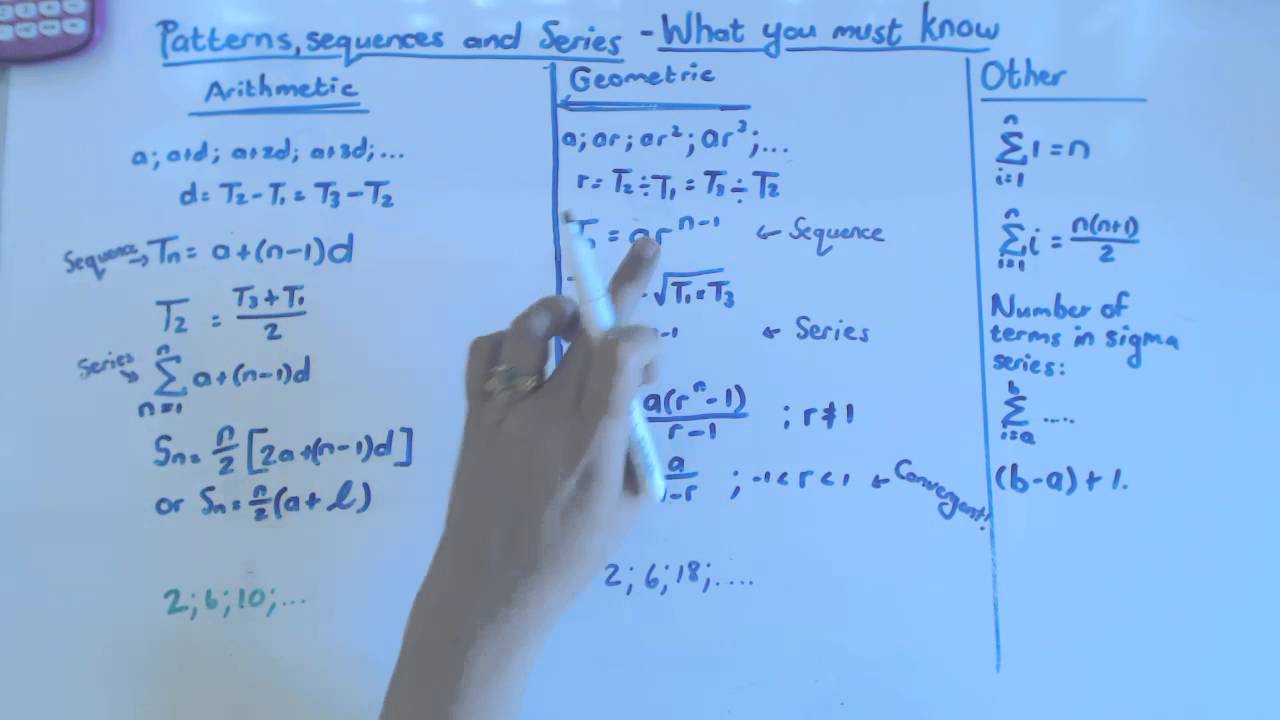 Patterns, sequences and Series - What you must know
Arithmetic
a; a+d; a+2d; a+3d; ...
d = T₂ - T₁ = T₃ - T₂
Sequence → Tn = a + (n-1)d
T₂ = (T₃ + T₁)/2
Series → ∑ⁿₙ₌₁ a + (n-1)d
Sn = n/2 [2a + (n-1)d]
or Sn = n/2 (a + l)
2; 6; 10; ...
Geometric
a; ar; ar²; ar³; ...
r = T₂ ÷ T₁ = T₃ ÷ T₂
= ar^(n-1) ← Sequence
√(T₁ × T₃)
-1 ← Series
a(rⁿ - 1)/(r - 1) ; r ≠ 1
a/(-r) ; -1 < r < 1 ← Convergent!
2; 6; 18; ....
Other
∑ⁿᵢ₌₁ 1 = n
∑ⁿᵢ₌₁ i = n(n+1)/2
Number of
terms in sigma
series:
∑ᵇᵢ₌ₐ ....
(b-a) + 1.